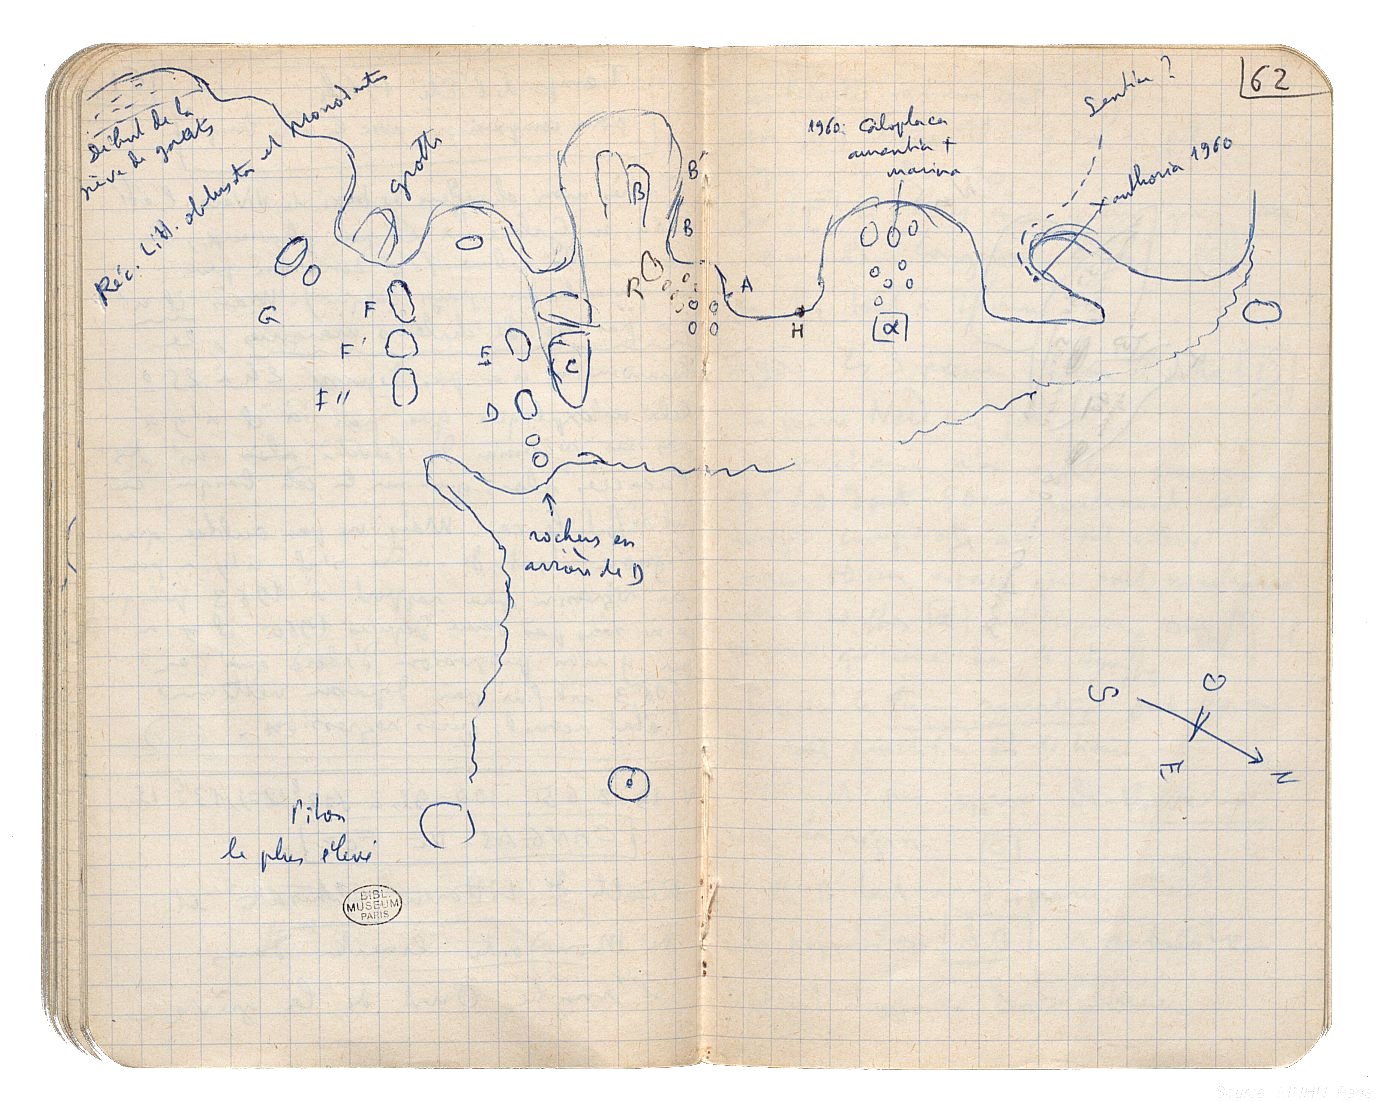 62
Sentier ?
début de la
grève de galets
Réc. Lith. obtusata et monodontes
grotte
1960: Caloplaca
aurantia +
marina
Xanthoria 1960
B'
B
B
R
A
H
α
G
F
F'
F''
E
D
C
rochers en
arrière de D
S
O
E
N
Piton
le plus élevé
BIBL.
MUSEUM
PARIS
Source : MNHN, Paris